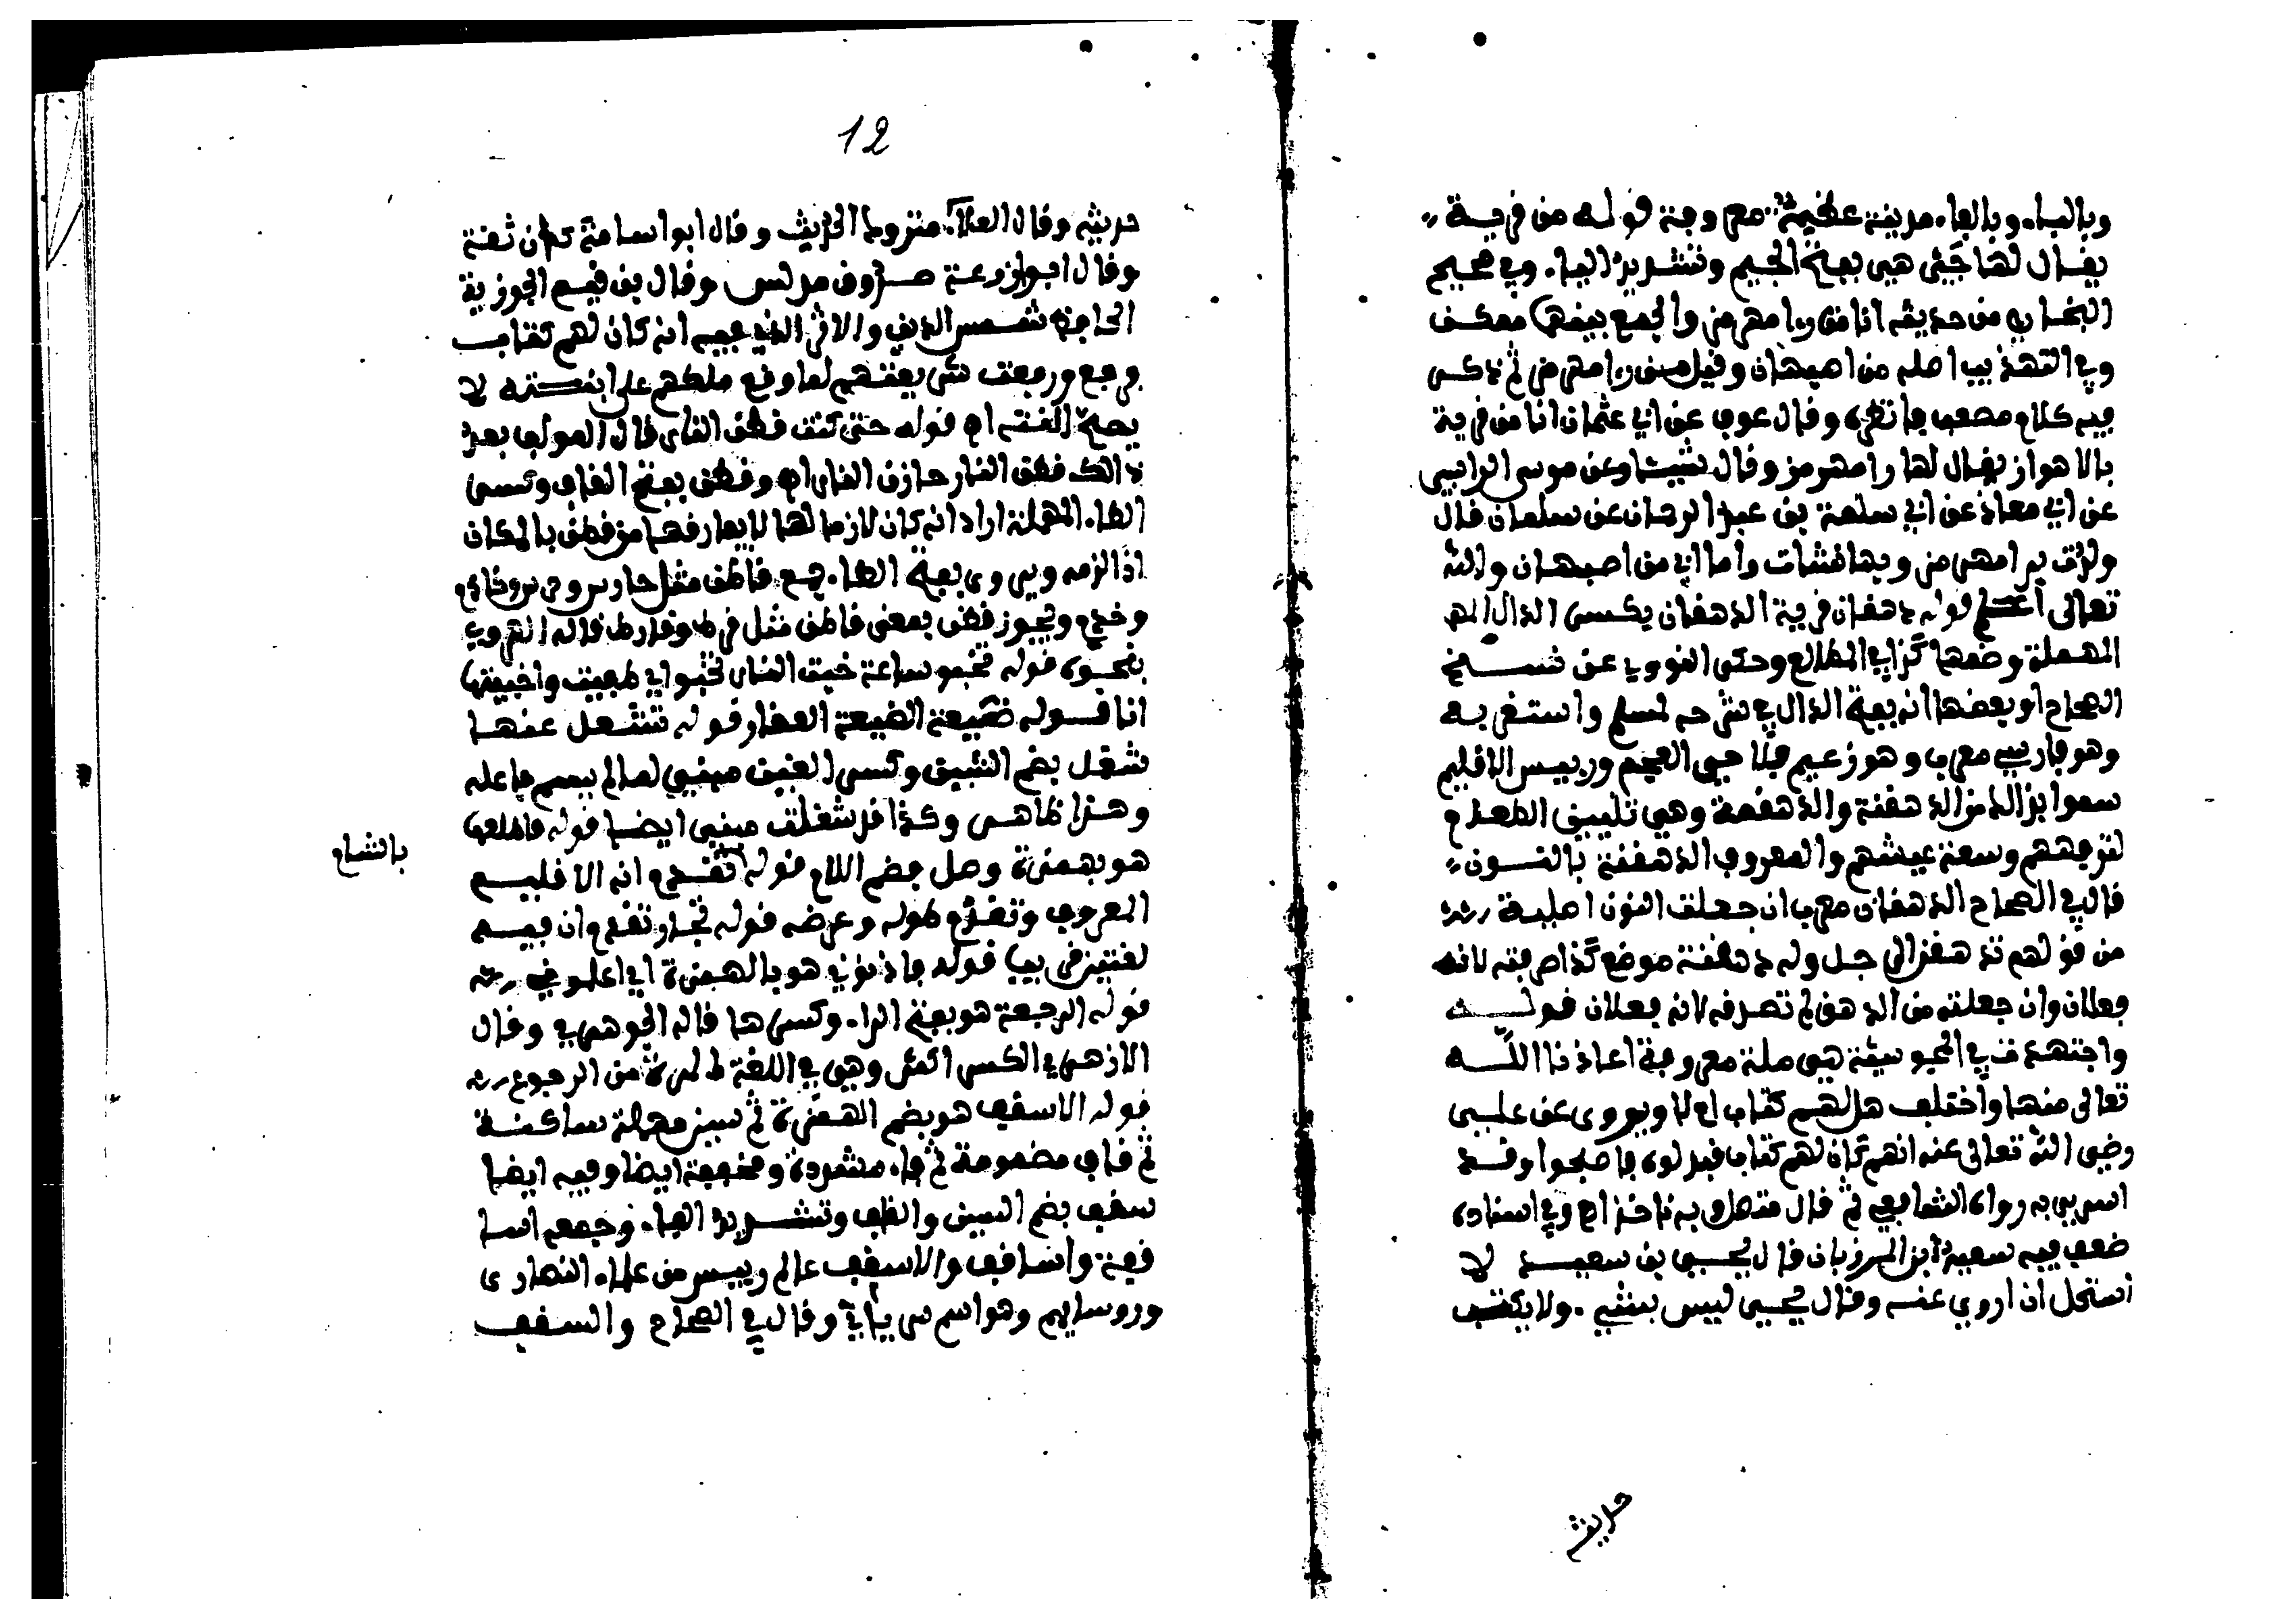 وبالباء وبالفاء مدينة عظيمة معروفة قوله من قرية
يقال لها جَيّ هي بفتح الجيم وتشديد الياء وفي صحيح
البخاري من حديثه انا من رامهرمز والجمع بينهما ممكن
وفي التهذيب اصله من اصبهان وقيل من رامهرمز ثم ذكر
فيه كلام مصعب فانظره وقال عوف عن ابي عثمان انا من قرية
بالاهواز يقال لها رامهرمز وقال وعن موسى الراسبي
عن ابي معاذ عن ابي سلمة بن عبد الرحمان عن سلمان قال
ولدت برامهرمز وبها نشات واما ابي من اصبهان والله
تعالى اعلم قوله دهقان قرية الدهقان بكسر الدال المهـ
المهملة وضمها كذا في المطالع وحكى النووي عن نسخ
الصحاح او بعضها انه بفتح الدال في شرحه لمسلم واستغربه
وهو فارسي معرب وهو زعيم فلاحي العجم ورييس الاقليم
سموا بذالك من الدهقنة والدهقمة وهي تليين الطعام
لترفههم وسعة عيشهم والمعروف الدهقنة بالنون
قال في الصحاح الدهقان معرب ان جعلت النون اصلية
من قولهم تدهقن الرجل وله دهقنة موضع كذا صرفته لانه
فعلال وان جعلته من الدهق لم تصرفه لانه فعلان قوله
واجتهدت في المجوسية هي ملة معروفة اعاذنا الله
تعالى منها واختلف هل لهم كتاب ام لا ويروى عن علي
رضي الله تعالى عنه انهم كان لهم كتاب فبدلوه فاصبحوا وقد
اسري به رواه الشافعي ثم قال متصل وبه ناخذ اه وفي اسناده
ضعف فيه سعيد ابن المرزبان قال يحيى بن سعيد لا
استحل ان اروي عنه وقال يحيى ليس بشيء ولا يكتب
حديثه
12
حديثه وقال الفلاس متروك الحديث وقال ابو اسامة كان ثقة
وقال ابو زرعة صدوق مدلس وقال بن قيم الجوزية
الحافظ شمس الدين والاثر الذي فيه انه كان لهم كتاب
فرفع ورفعت شريعتهم لما وقع ملكهم على ابنته لا
يصح البتة اه قوله حتى كنت قطن النار قال المولف بعد
ذالك قطن النار خازن النار اه وقطن بفتح القاف وكسر
الطاء المهملة اراد انه كان لازما لها لا يفارقها من قطن بالمكان
اذا لزمه ويروى بفتح الطاء جمع قاطن مثل حارس وحرس وخادم
وخدم ويجوز قطن بمعنى قاطن مثل فرط وفارط قاله الهروي
بنحوه قوله تخبو ساعة خبت النار تخبو اي طفيت واخبيتها
انا قوله ضيعة الضيعة العقار قوله تشغل عنها
شغل بضم الشين وكسر الغين مبني لما لم يسم فاعله
وهذا ظاهر وكذا قد شغلت مبني ايضا قوله فاطلعها
هو بهمزة وصل وضم اللام قوله تقدم انه الاقليم
بالشام
المعروف وتقدم طوله وعرضه قوله تجار تقدم ان فيه
لغتين قريبا قوله فاذنوني هو بالهمزة اي اعلموني
قوله الرجعة هو بفتح الراء وكسرها قاله الجوهري وقال
الازهري الكسر اكثر وهي في اللغة المرة من الرجوع
قوله الاسقف هو بضم الهمزة ثم سين مهملة ساكنة
ثم قاف مضمومة ثم فاء مشددة ومخففة ايضا وفيه ايضا
سقف بضم السين والقاف وتشديد الفاء وجمعه اسا
قفة واساقف والاسقف عالم رييس من علماء النصارى
وروسايهم وهو اسم سرياني وقال في الصحاح والسقف